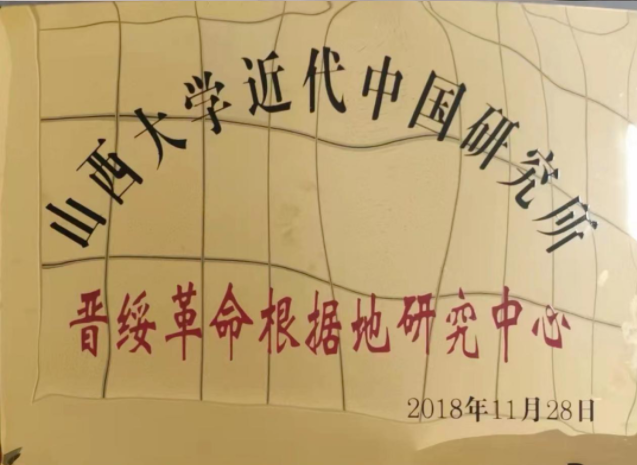 山西大学近代中国研究所
晋绥革命根据地研究中心
2018年11月28日